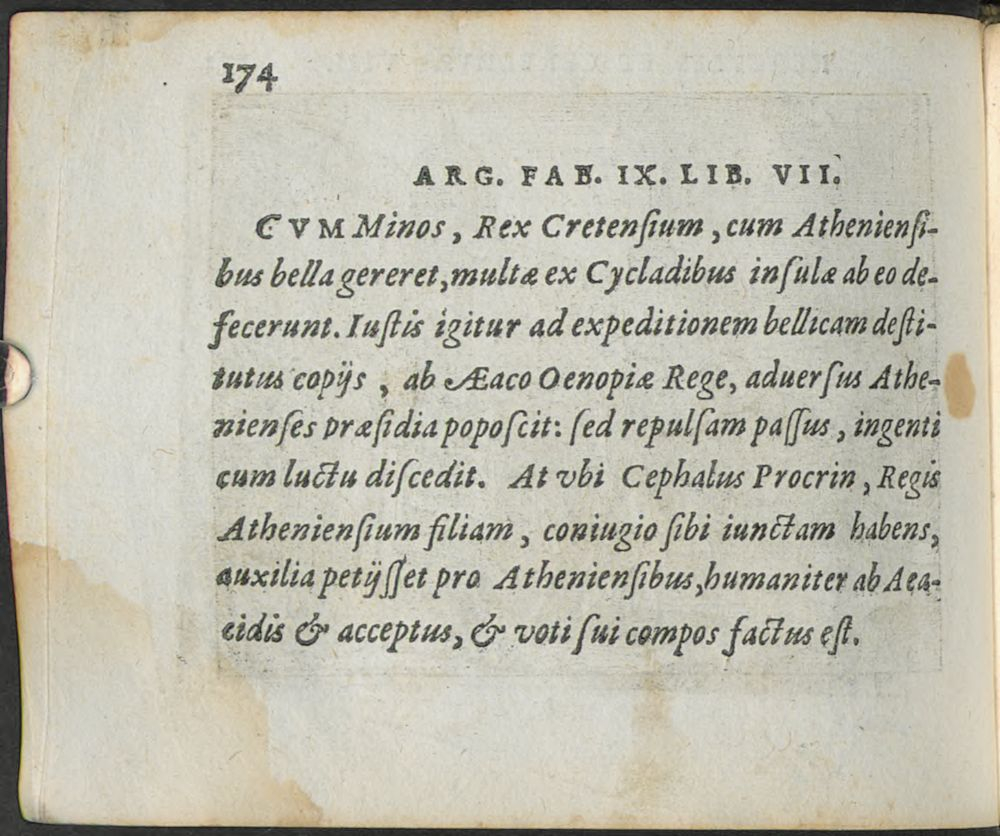 174
ARG. FAB. IX. LIB. VII.
CVM Minos, Rex Cretenſium, cum Athenienſi-
bus bella gereret, multæ ex Cycladibus inſulæ ab eo de-
fecerunt. Iuſtis igitur ad expeditionem bellicam deſti-
tutus copijs, ab Æaco Oenopiæ Rege, aduerſus Athe-
nienſes præſidia popoſcit: ſed repulſam paſſus, ingenti
cum luctu diſcedit. At vbi Cephalus Procrin, Regis
Athenienſium filiam, coniugio ſibi iunctam habens,
auxilia petijſſet pro Athenienſibus, humaniter ab Aea-
cidis & acceptus, & voti ſui compos factus eſt.